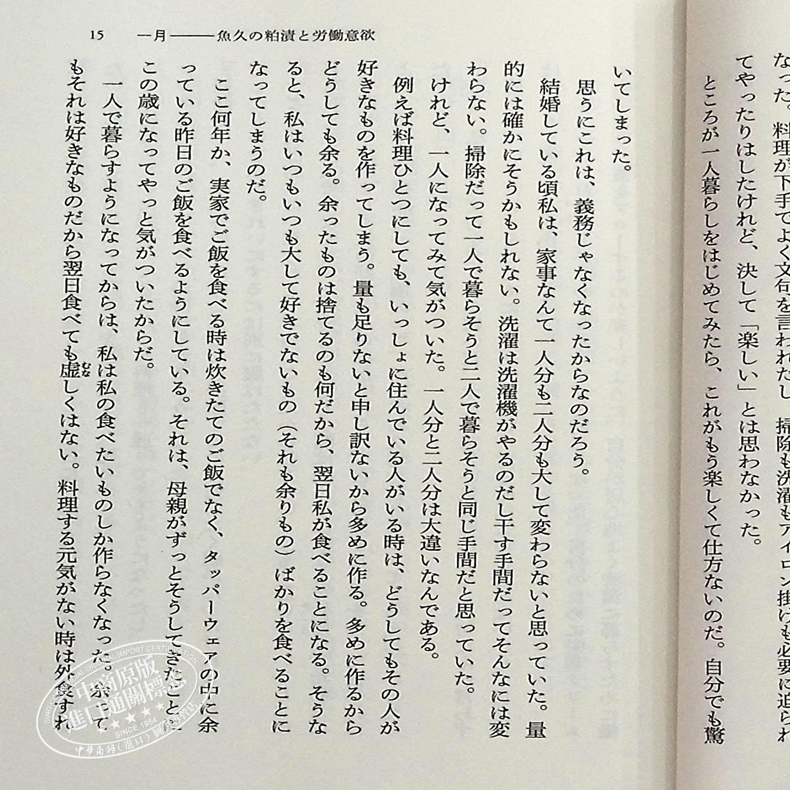 なった。料理が下手でよく文句を言われたし、掃除も洗濯もアイロン掛けも必要に迫られ
てやったりはしたけれど、決して「楽しい」とは思わなかった。
ところが一人暮らしをはじめてみたら、これがもう楽しくて仕方ないのだ。自分でも驚
15 一月――魚久の粕漬と労働意欲
いてしまった。
思うにこれは、義務じゃなくなったからなのだろう。
結婚している頃私は、家事なんて一人分も二人分も大して変わらないと思っていた。量
的には確かにそうかもしれない。洗濯は洗濯機がやるのだし干す手間だってそんなには変
わらない。掃除だって一人で暮らそうと二人で暮らそうと同じ手間だと思っていた。
けれど、一人になってみて気がついた。一人分と二人分は大違いなんである。
例えば料理ひとつにしても、いっしょに住んでいる人がいる時は、どうしてもその人が
好きなものを作ってしまう。量も足りないと申し訳ないから多めに作る。多めに作るから
どうしても余る。余ったものは捨てるのも何だから、翌日私が食べることになる。そうな
ると、私はいつもいつも大して好きでないもの（それも余りもの）ばかりを食べることに
なってしまうのだ。
ここ何年か、実家でご飯を食べる時は炊きたてのご飯でなく、タッパーウェアの中に余
っている昨日のご飯を食べるようにしている。それは、母親がずっとそうしてきた
この歳になってやっと気がついたからだ。
一人で暮らすようになってからは、私は私の食べたいものしか作らなくなった。余って
もそれは好きなものだから翌日食べても虚しくはない。料理する元気がない時は外食すれ
むな
中商原版
進口通關標誌
SINCE 1954